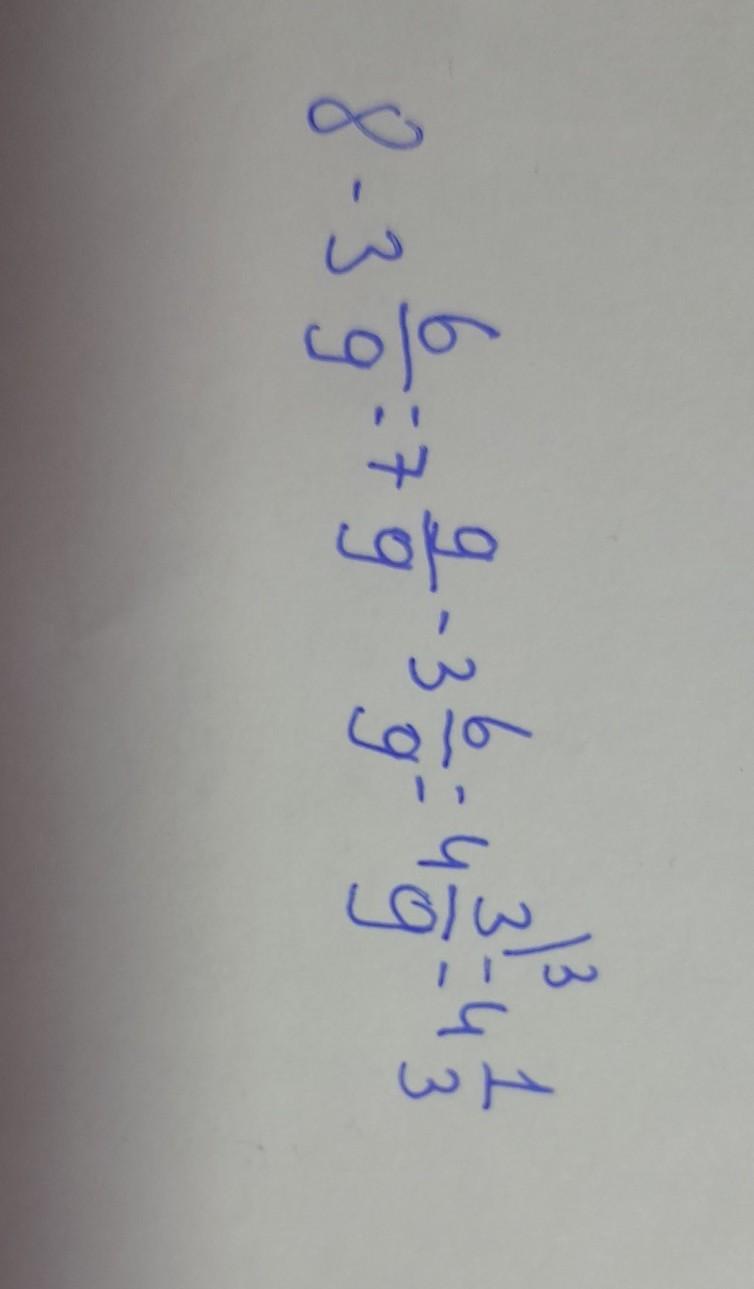 8 - 3 6/9 = 7 9/9 - 3 6/9 = 4 3/9 |3 = 4 1/3